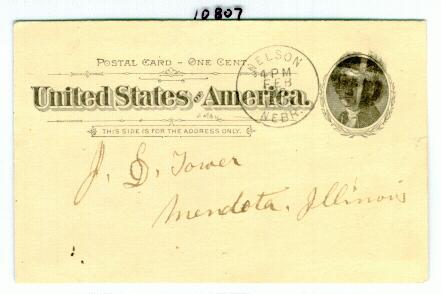 10807
POSTAL CARD - ONE CENT.
United States of America.
THIS SIDE IS FOR THE ADDRESS ONLY.
NELSON
4 PM
FEB
NEBR.
J. D. Tower
Mendota, Illinois